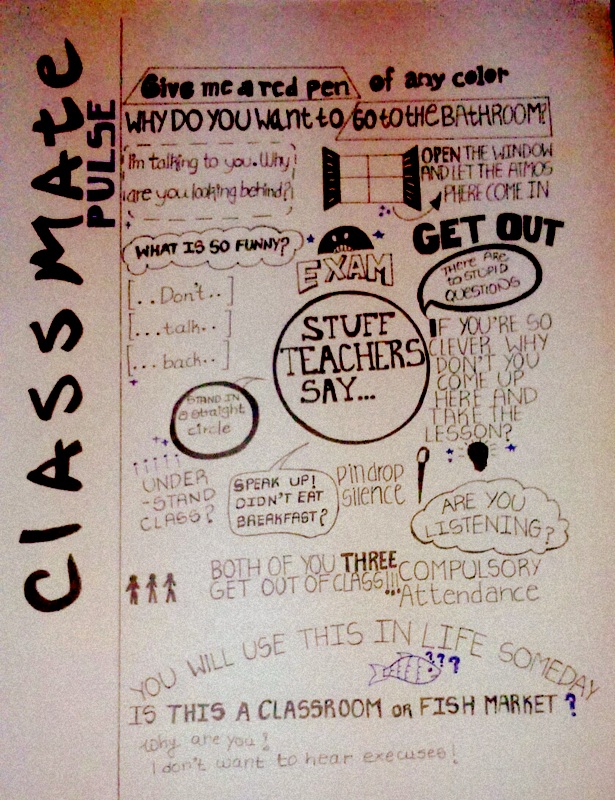 ClASSMAte
PULSE
Give me a red pen of any color
WHY DO YOU Want to Go to the BATHROOM?
I'm talking to you. Why
are you looking behind?
OPEN THE WINDOW
AND LET THE ATMOS
PHERE COME IN
GET OUT
WHAT IS SO FUNNY?
EXAM
THERE ARE
no STUPID
QUESTIONS
[..Don't..]
[...talk..]
[...back..]
STUFF
TEACHERS
SAY...
IF YOU'RE SO
CLEVER, WHY
DON'T YOU
COME UP
HERE AND
TAKE THE
LESSON?
STAND IN
a straight
circle
UNDER
-STAND
CLASS?
SPEAK UP!
DIDN'T EAT
BREAKFAST?
Pindrop
Silence
ARE YOU
LISTENING?
BOTH OF YOU THREE
GET OUT OF CLASS!!!
COMPULSORY
Attendance
YOU WILL USE THIS IN LIFE SOMEDAY
???
IS THIS A CLASSROOM or FISH MARKET ?
Why are you!
I don't want to hear execuses!